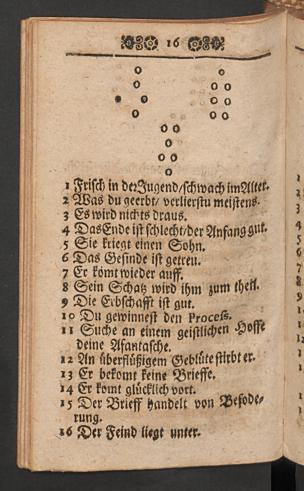 16
1 Frisch in der Jugend/schwach im Alter.
2 Was du geerbt/ verlierstu meistens.
3 Es wird nichts draus.
4 Das Ende ist schlecht/der Anfang gut.
5 Sie kriegt einen Sohn.
6 Das Gesinde ist getreu.
7 Er komt wieder auff.
8 Sein Schatz wird ihm zum theil.
9 Die Erbschafft ist gut.
10 Du gewinnest den Process.
11 Suche an einem geistlichen Hoffe
deine Avantasche.
12 An überflüßigem Geblüte stirbt er.
13 Er bekomt keine Brieffe.
14 Er komt glücklich vort.
15 Der Brieff handelt von Befode-
rung.
16 Der Feind liegt unter.